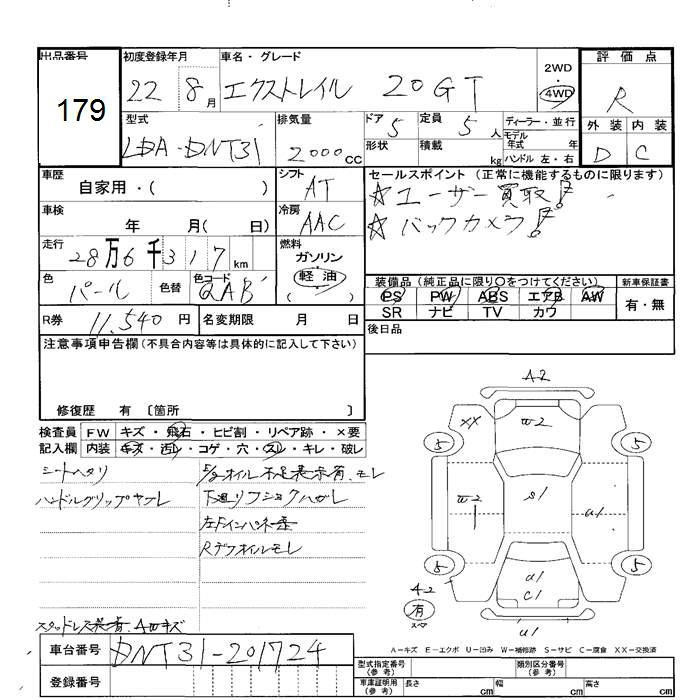 出品番号 初度登録年月 車名・グレード 評価点
179 22 8月 エクストレイル 20GT 2WD 4WD R
型式 排気量 ドア 5 定員 5人 ディーラー・並行 外装 内装
LDA-DNT31 2000CC 形状 積載 kg モデル年式 年 ハンドル 左・右 D C
車歴 シフト セールスポイント (正常に機能するものに限ります)
自家用・( ) AT ☆ユーザー買取!
車検 年 月( 日) 冷房 AAC ☆バックカメラ!
走行 28万6千317km 燃料 ガソリン 軽油 ( )
色 パール 色替 色コード QAB 装備品 (純正品に限り○をつけてください) 新車保証書
PS PW ABS エアB AW 有・無
SR ナビ TV カワ
R券 11,540円 名変期限 月 日 後日品
注意事項申告欄(不具合内容等は具体的に記入して下さい)
修復歴 有 〔箇所 〕
検査員 FW キズ・飛石・ヒビ割・リペア跡・×要
記入欄 内装 キズ・汚レ・コゲ・穴・スレ・キレ・破レ
シートヘタリ
ハンドルグリップヤブレ
E/gオイル不足表示有.モレ
下廻リフショクハガレ
左Fインパネ歪
Rデフオイルモレ
スタッドレス装着.AWキズ
A2
XX W2
5 5
W2 S1 A1
5 5
A1
C1
A2
有
スペア
U1
A−キズ E−エクボ U−凹み W−補修跡 S−サビ C−腐食 XX−交換済
車台番号 DNT31-201724
登録番号
型式指定番号(参考) 類別区分番号(参考)
車庫証明用(参考) 長さ cm 幅 cm 高さ cm